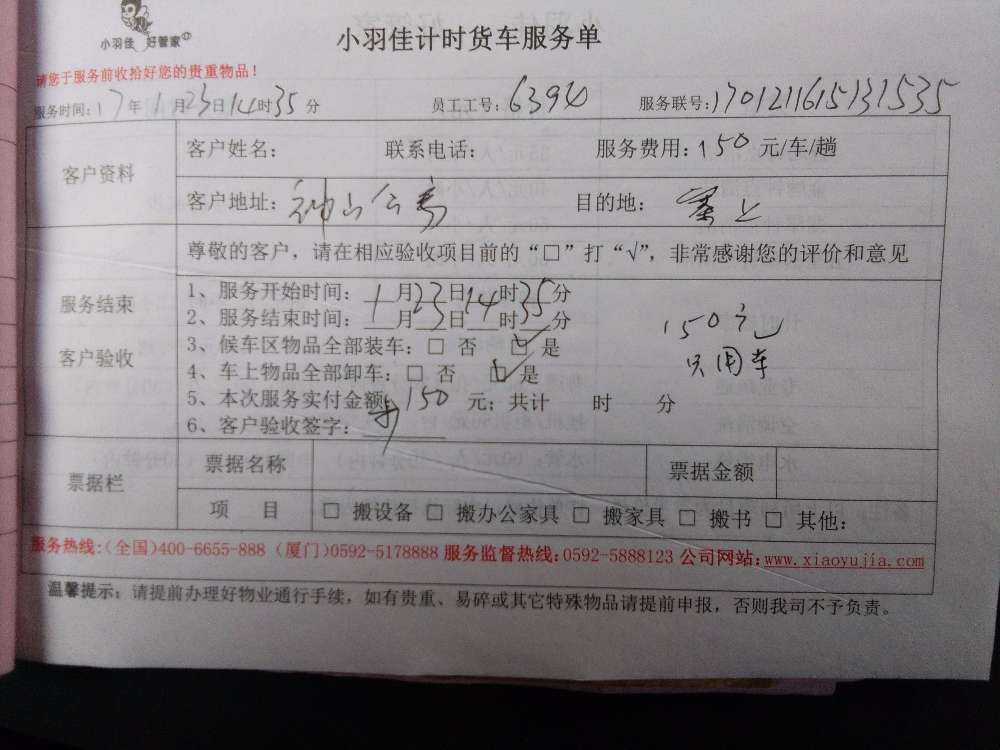 小羽佳 好管家
小羽佳计时货车服务单
请您于服务前收拾好您的贵重物品！
服务时间：17年1月23日14时35分 员工工号：6394 服务联号：1701211615131535
客户资料
客户姓名： 联系电话： 服务费用：150元/车/趟
客户地址：神山公寓 目的地：寨上
尊敬的客户，请在相应验收项目前的“□”打“√”，非常感谢您的评价和意见
服务结束
客户验收
1、服务开始时间：1月23日14时35分
2、服务结束时间：__月__日__时__分
3、候车区物品全部装车：□ 否 ☑ 是
4、车上物品全部卸车：□ 否 ☑ 是
5、本次服务实付金额：150 元；共计 时 分
6、客户验收签字：
150元
只用车
票据栏
票据名称 票据金额
项 目 □ 搬设备 □ 搬办公家具 □ 搬家具 □ 搬书 □ 其他：
服务热线：(全国)400-6655-888 (厦门)0592-5178888 服务监督热线：0592-5888123 公司网站：www.xiaoyujia.com
温馨提示：请提前办理好物业通行手续，如有贵重、易碎或其它特殊物品请提前申报，否则我司不予负责。